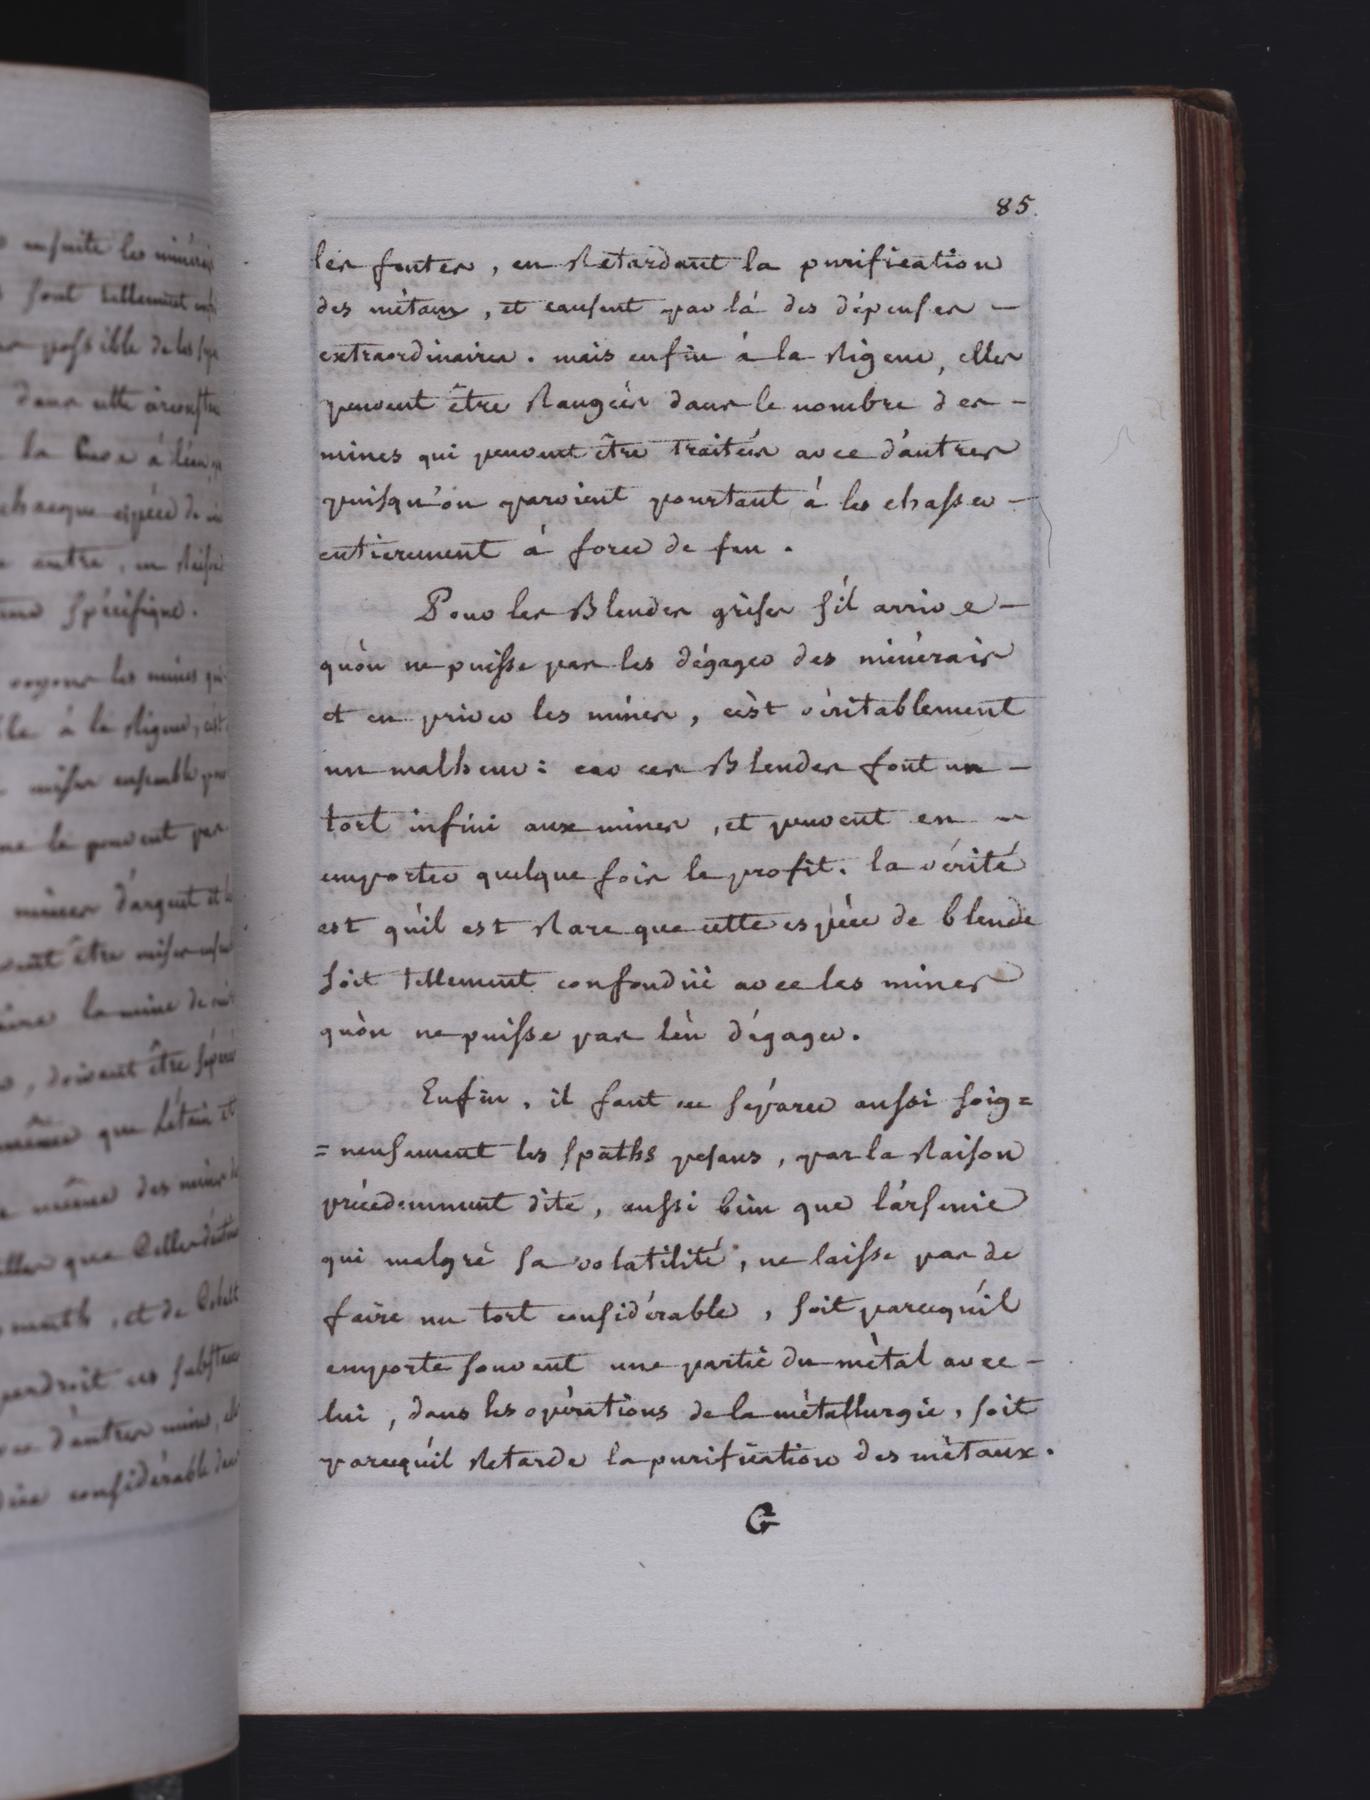 85.
les fontes, en Retardant la purification
des métaux, et causent par là des dépenses –
extraordinaires. mais enfin à la Rigeur, elles
peuvent être Rangées dans le nombre des –
mines qui peuvent être traitées avec d'autres
puisqu'on parvient pourtant à les chasser –
entierement à force de feu.
Pour les Blendes grises s'il arrive –
qu'on ne puisse pas les dégager des minérais
et en priver les mines, c'est véritablement
un malheur: car ces Blendes font un –
tort infini aux mines, et peuvent en –
emporter quelque fois le profit. la vérité
est qu'il est Rare que cette espèce de blende
soit tellement confonduë avec les mines
qu'on ne puisse pas l'en dégager.
Enfin, il faut en séparer aussi soig=
=neusement les spaths pesans, par la Raison
précédemment dite, aussi bien que l'arsenic
qui malgré sa volatilité, ne laisse pas de
faire un tort considérable, soit parcequ'il
emporte souvent une partie du métal avec –
lui, dans les opérations de la métallurgie, soit
parcequ'il Retarde la purification des métaux.
G
ensuite les minérais
sont tellement
possible de les
dans cette
la Cuve à l'eau
chacque espéce de
autre, en Raison
spécifique.
voyons les mines qui
à la Rigeur,
mises ensemble
ne le peuvent pas
mines d'argent et
être mises
la mine de
, doivent être
même que l'étain et
même des mines
que Celles
, et de Cobalt
perdroit ces
d'autres mines,
considérable